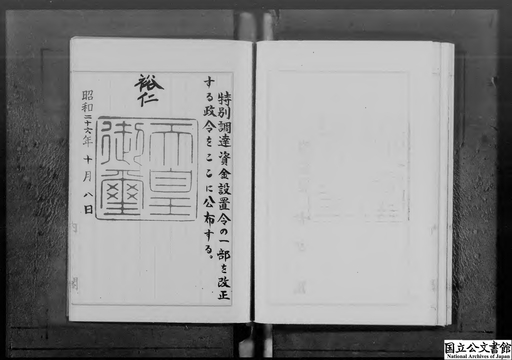 特別調達資金設置令の一部を改正
する政令をここに公布する。
裕仁
天皇
御璽
昭和三十六年十月八日
国立公文書館
National Archives of Japan